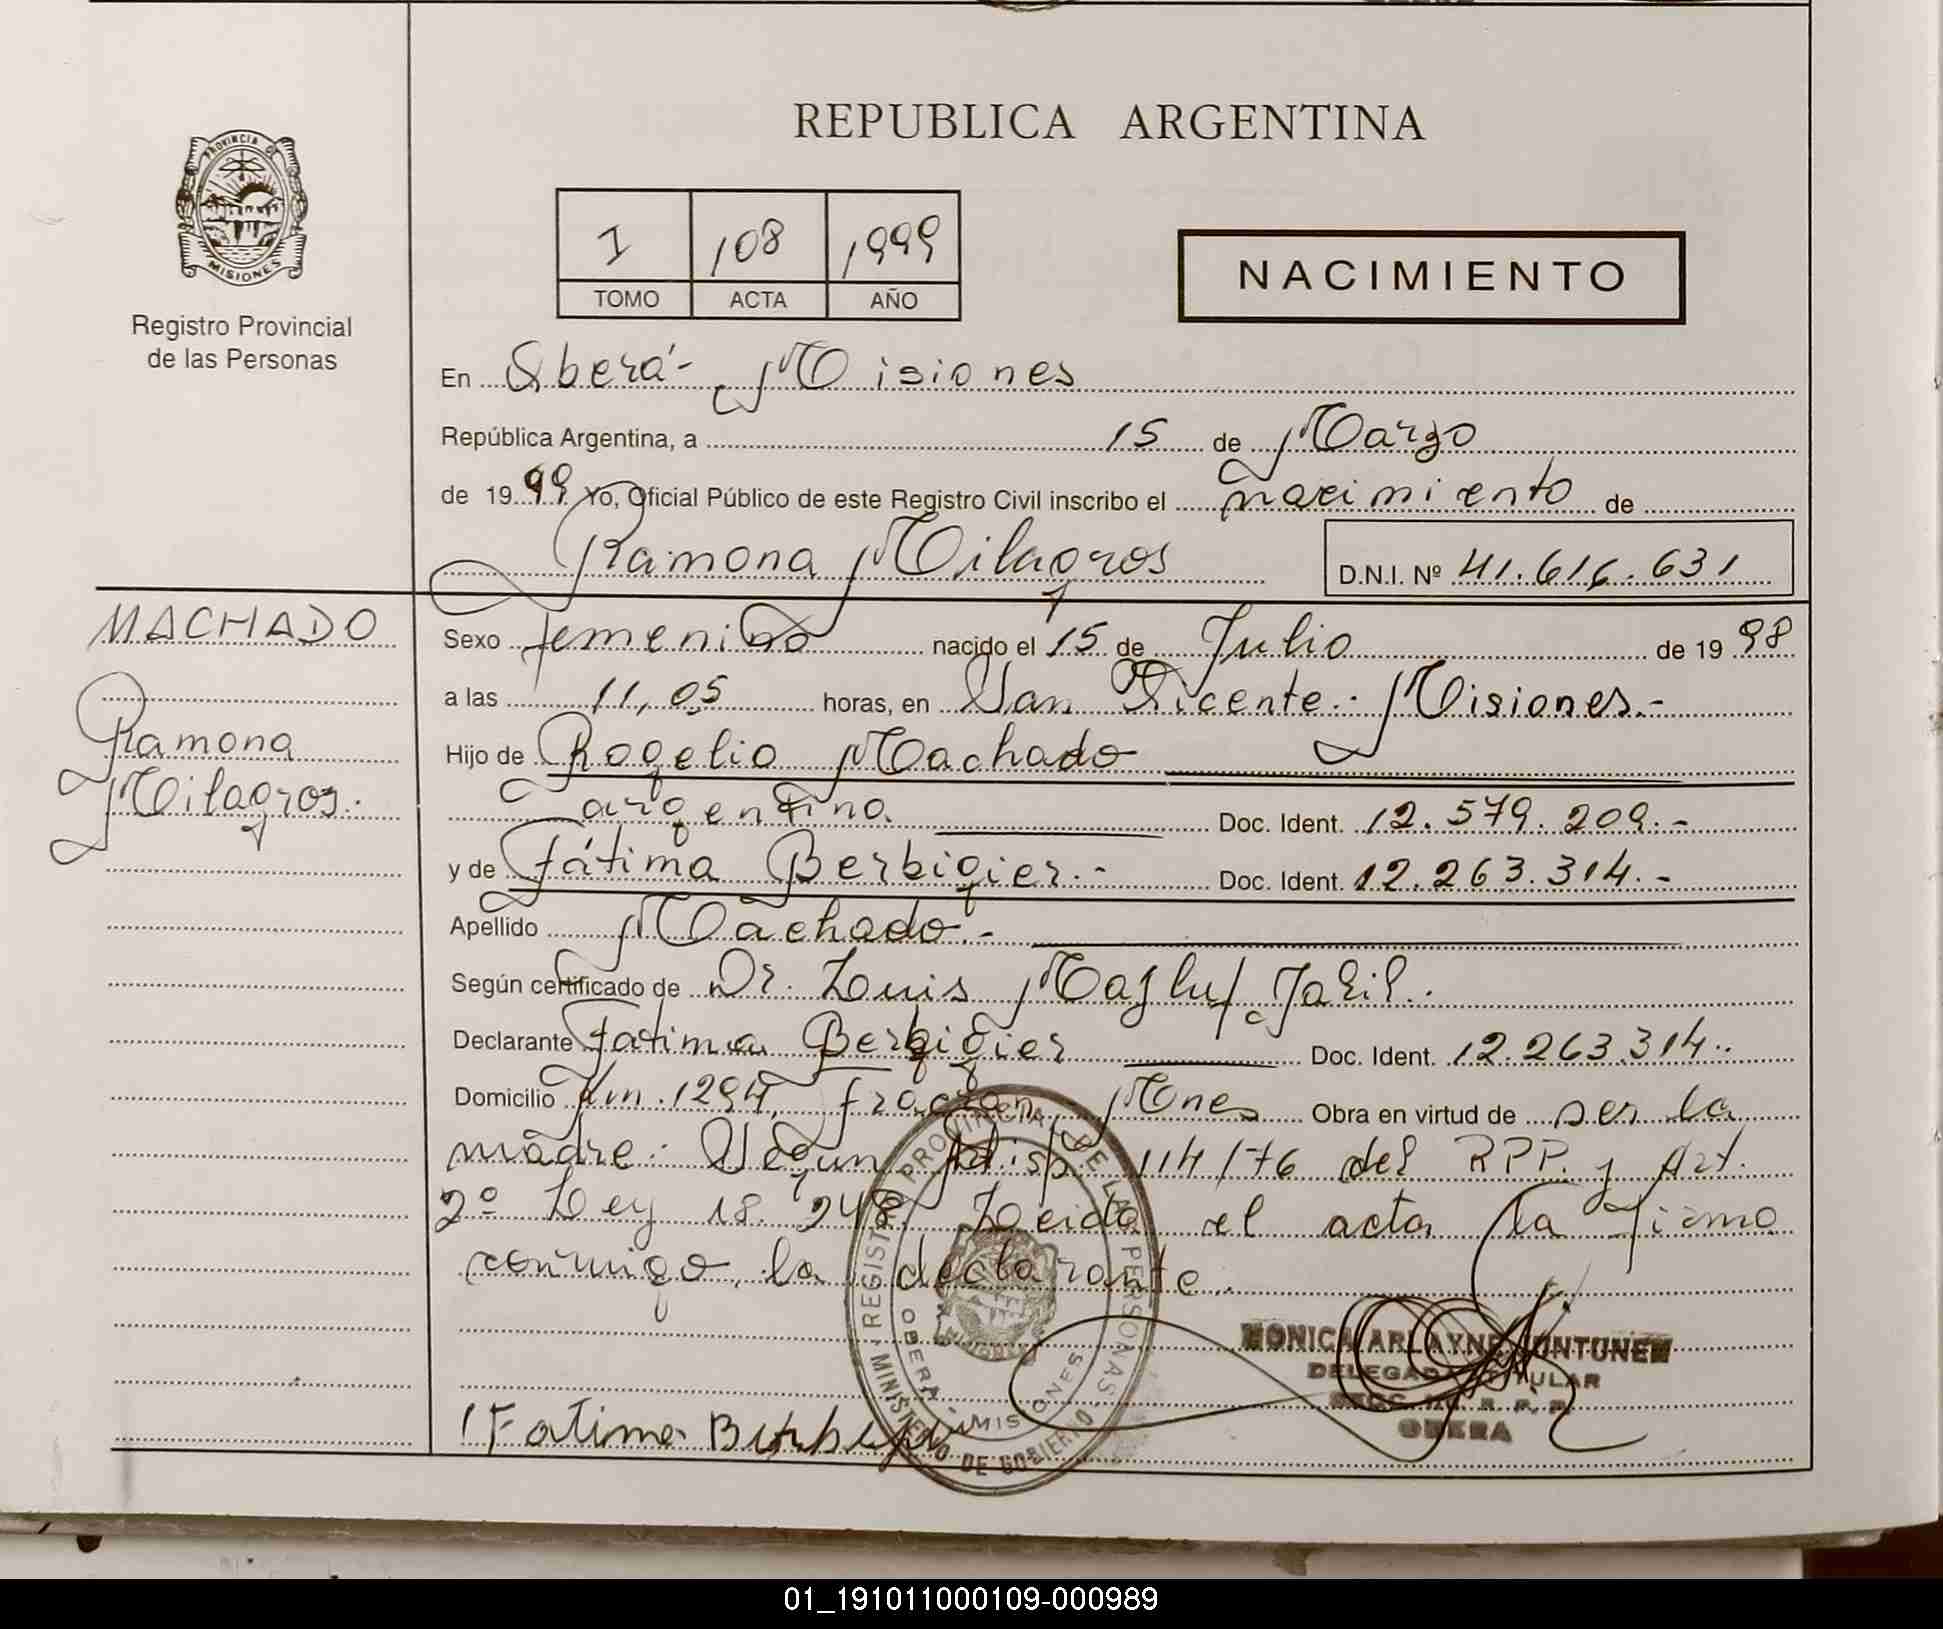 REPUBLICA ARGENTINA
PROVINCIA DE
MISIONES
Registro Provincial
de las Personas
I 108 1999
TOMO ACTA AÑO
NACIMIENTO
En Oberá - Misiones
República Argentina, a 15 de Marzo
de 1999 Yo, Oficial Público de este Registro Civil inscribo el nacimiento de
Ramona Milagros D.N.I. Nº 41.616.631
MACHADO
Ramona
Milagros.-
Sexo femenino nacido el 15 de Julio de 1998
a las 11,05 horas, en San Vicente - Misiones.-
Hijo de Rogelio Machado
argentino. Doc. Ident. 12.579.209.-
y de Fátima Berbigier.- Doc. Ident. 12.263.314.-
Apellido Machado.-
Según certificado de Dr. Luis
Declarante Fatima Berbigier Doc. Ident. 12.263.314..
Domicilio Km. 1294, Mnes Obra en virtud de ser la
madre. Según Disp. 114/76 del RPP. y Art.
2º Ley 18.248. Leida el acta la firma
conmigo, la declarante.
REGISTRO PROVINCIAL DE LAS PERSONAS
MINISTERIO DE GOBIERNO
OBERA MISIONES
MONICA ARLAYNE
DELEGADA TITULAR
OBERA
Fatima
01_191011000109-000989